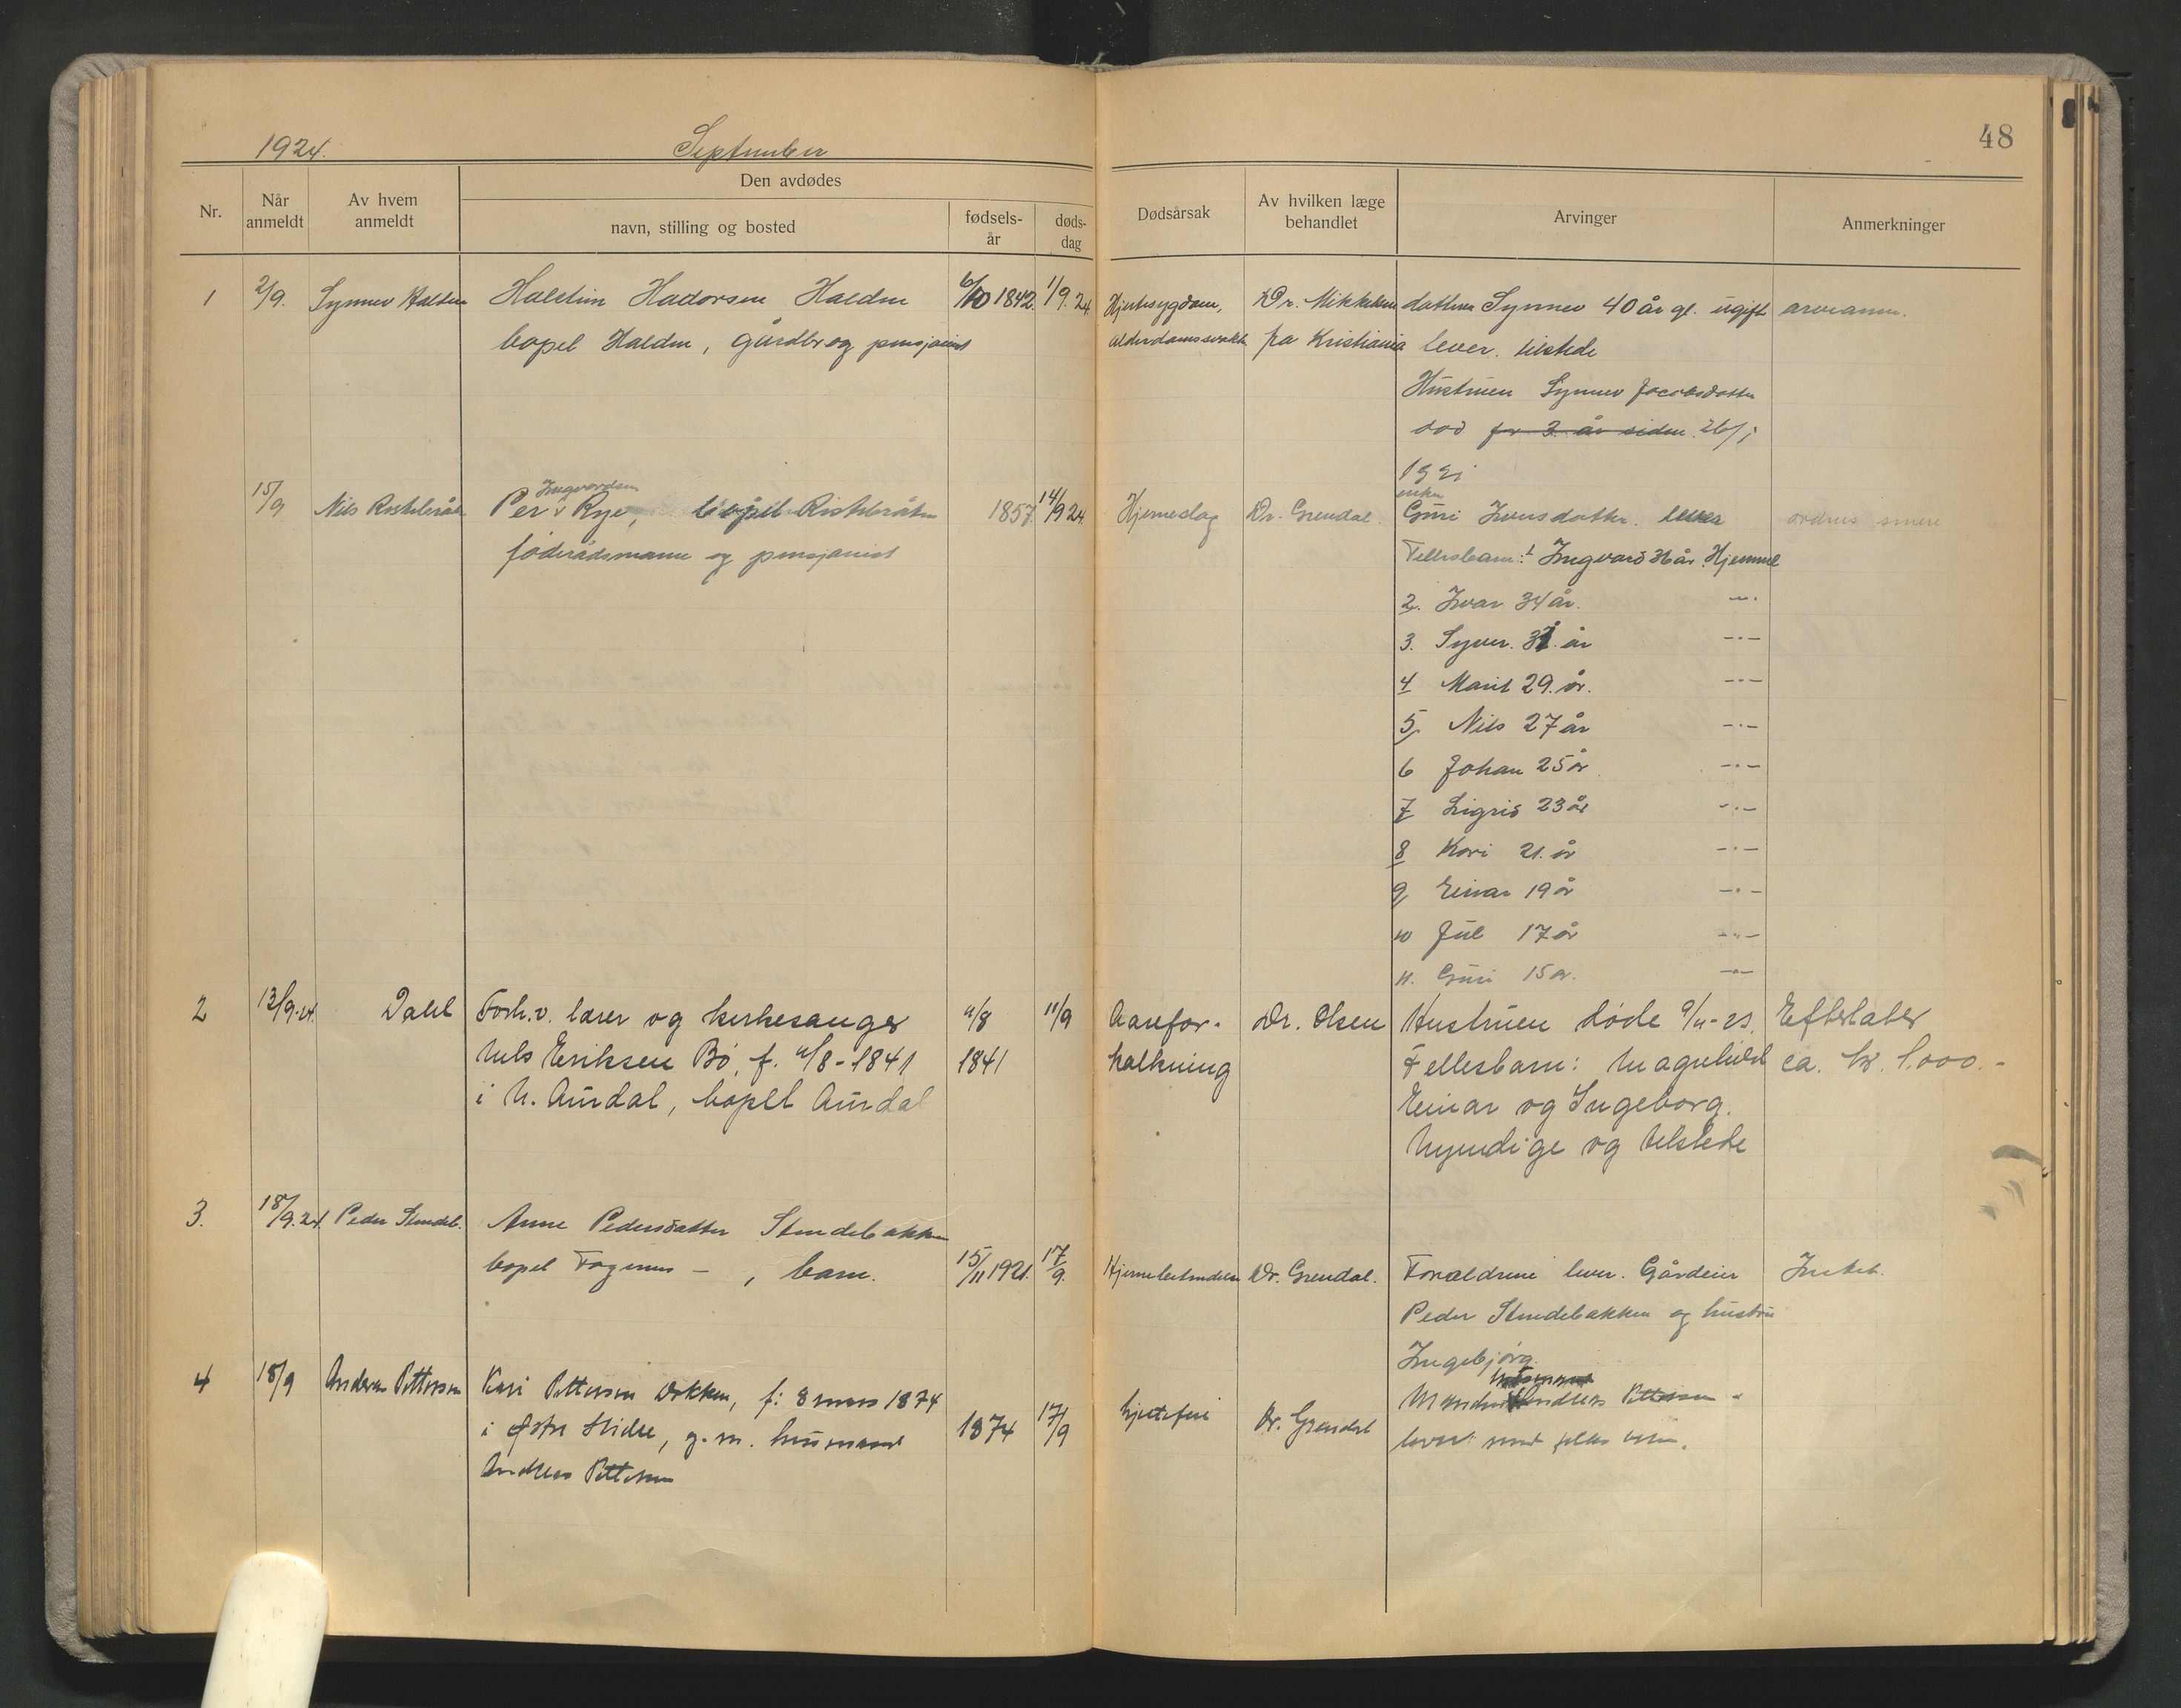 1924.
September
48
Nr.
Når anmeldt
Av hvem anmeldt
Den avdødes
navn, stilling og bosted
fødsels-år
døds-dag
Dødsårsak
Av hvilken læge behandlet
Arvinger
Anmerkninger
1 2/9. Synnev Halden Halstein Hadorsen Halden 6/10 1842. 1/9.24 Hjertesygdom, Dr. Mikkelsen datteren Synnev 40 år gl. ugift
bopel Halden, gårdbr og pensjonist alderdomssvakh. fra Kristiania lever. tilstede
Hustruen Synnev Jacobsdatter
død for 3 år siden 26/1
1921
Ingvardsen enken
15/9 Nils Per Rye, bopel 1857 14/9 24 Hjerneslag Dr. Grendal. Guri Iversdatter. lever
føderådsmann og pensjonist Fellesbarn: 1 Ingvard 36 år. Hjemme
2. Ivar 34 år. -"-
3. Syver. 31. år -"-
4 Marit 29. år. -"-
5. Nils 27 år -"-
6 Johan 25 år -"-
7 Sigrid 23 år -"-
8 Kari 21. år -"-
9 Einar 19 år -"-
10 Jul 17 år -"-
11. Guri 15 år. -"-
2 13/9-24. Dahl Forh.v. lærer og kirkesanger 11/8 11/9 Aarefor- Dr. Olsen Hustruen døde 9/11-23. Efterlater
Nils Eriksen Bø, f. 11/8-1841 1841 kalkning Fellesbarn: Magnhild ca. kr. 1.000.-
i N. Aurdal, bopel Aurdal Einar og Ingeborg.
Myndige og tilstede
3. 18/9.24. Peder Stendeb. Anne Pedersdatter Stendebakken
bopel Fagernes - , barn. 15/11 1921. 17/9. Hjernebetendelse Dr. Grendal. Forældrene lever. Gårdeier Intet.
Peder Stendebakken og hustru
Ingebjørg
4 18/9 Andreas Pettersen Kari Pettersen Dokken, f: 8 mars 1874 Manden Andreas Pettersen
i Østre Slidre, g. m. husmand 1874 17/9 hjertefeil Dr. Grendal lever
Andreas Pettersen